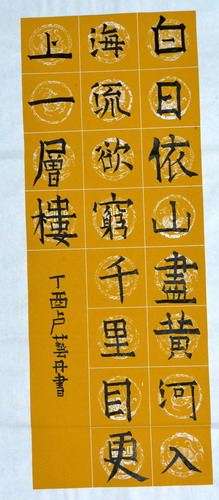 白日依山盡黄河入
海流欲窮千里目更
上一層樓
丁酉卢藝丹書